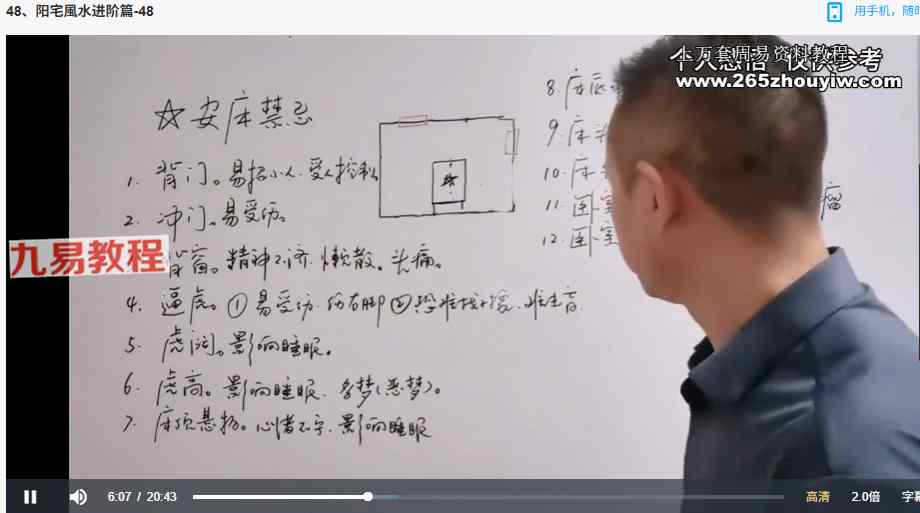 48、阳宅風水进阶篇-48
用手机，随时
上万套周易资料教程
个人感悟 仅供参考
www.265zhouyiw.com
☆安床禁忌
1. 背门。易招小人.受人控制。
2. 冲门。易受伤。
九易教程
背窗。精神不济.懒散。头痛。
4. 逼虎。①易受伤.伤右脚②难生育.
5. 虎闹。影响睡眠。
6. 虎高。影响睡眠.多梦(恶梦)。
7. 床顶悬物。心绪不宁.影响睡眠
8. 床
9. 床头
10. 床
11. 卧室
瘤
12. 卧室
6:07 / 20:43
高清
2.0倍
字幕